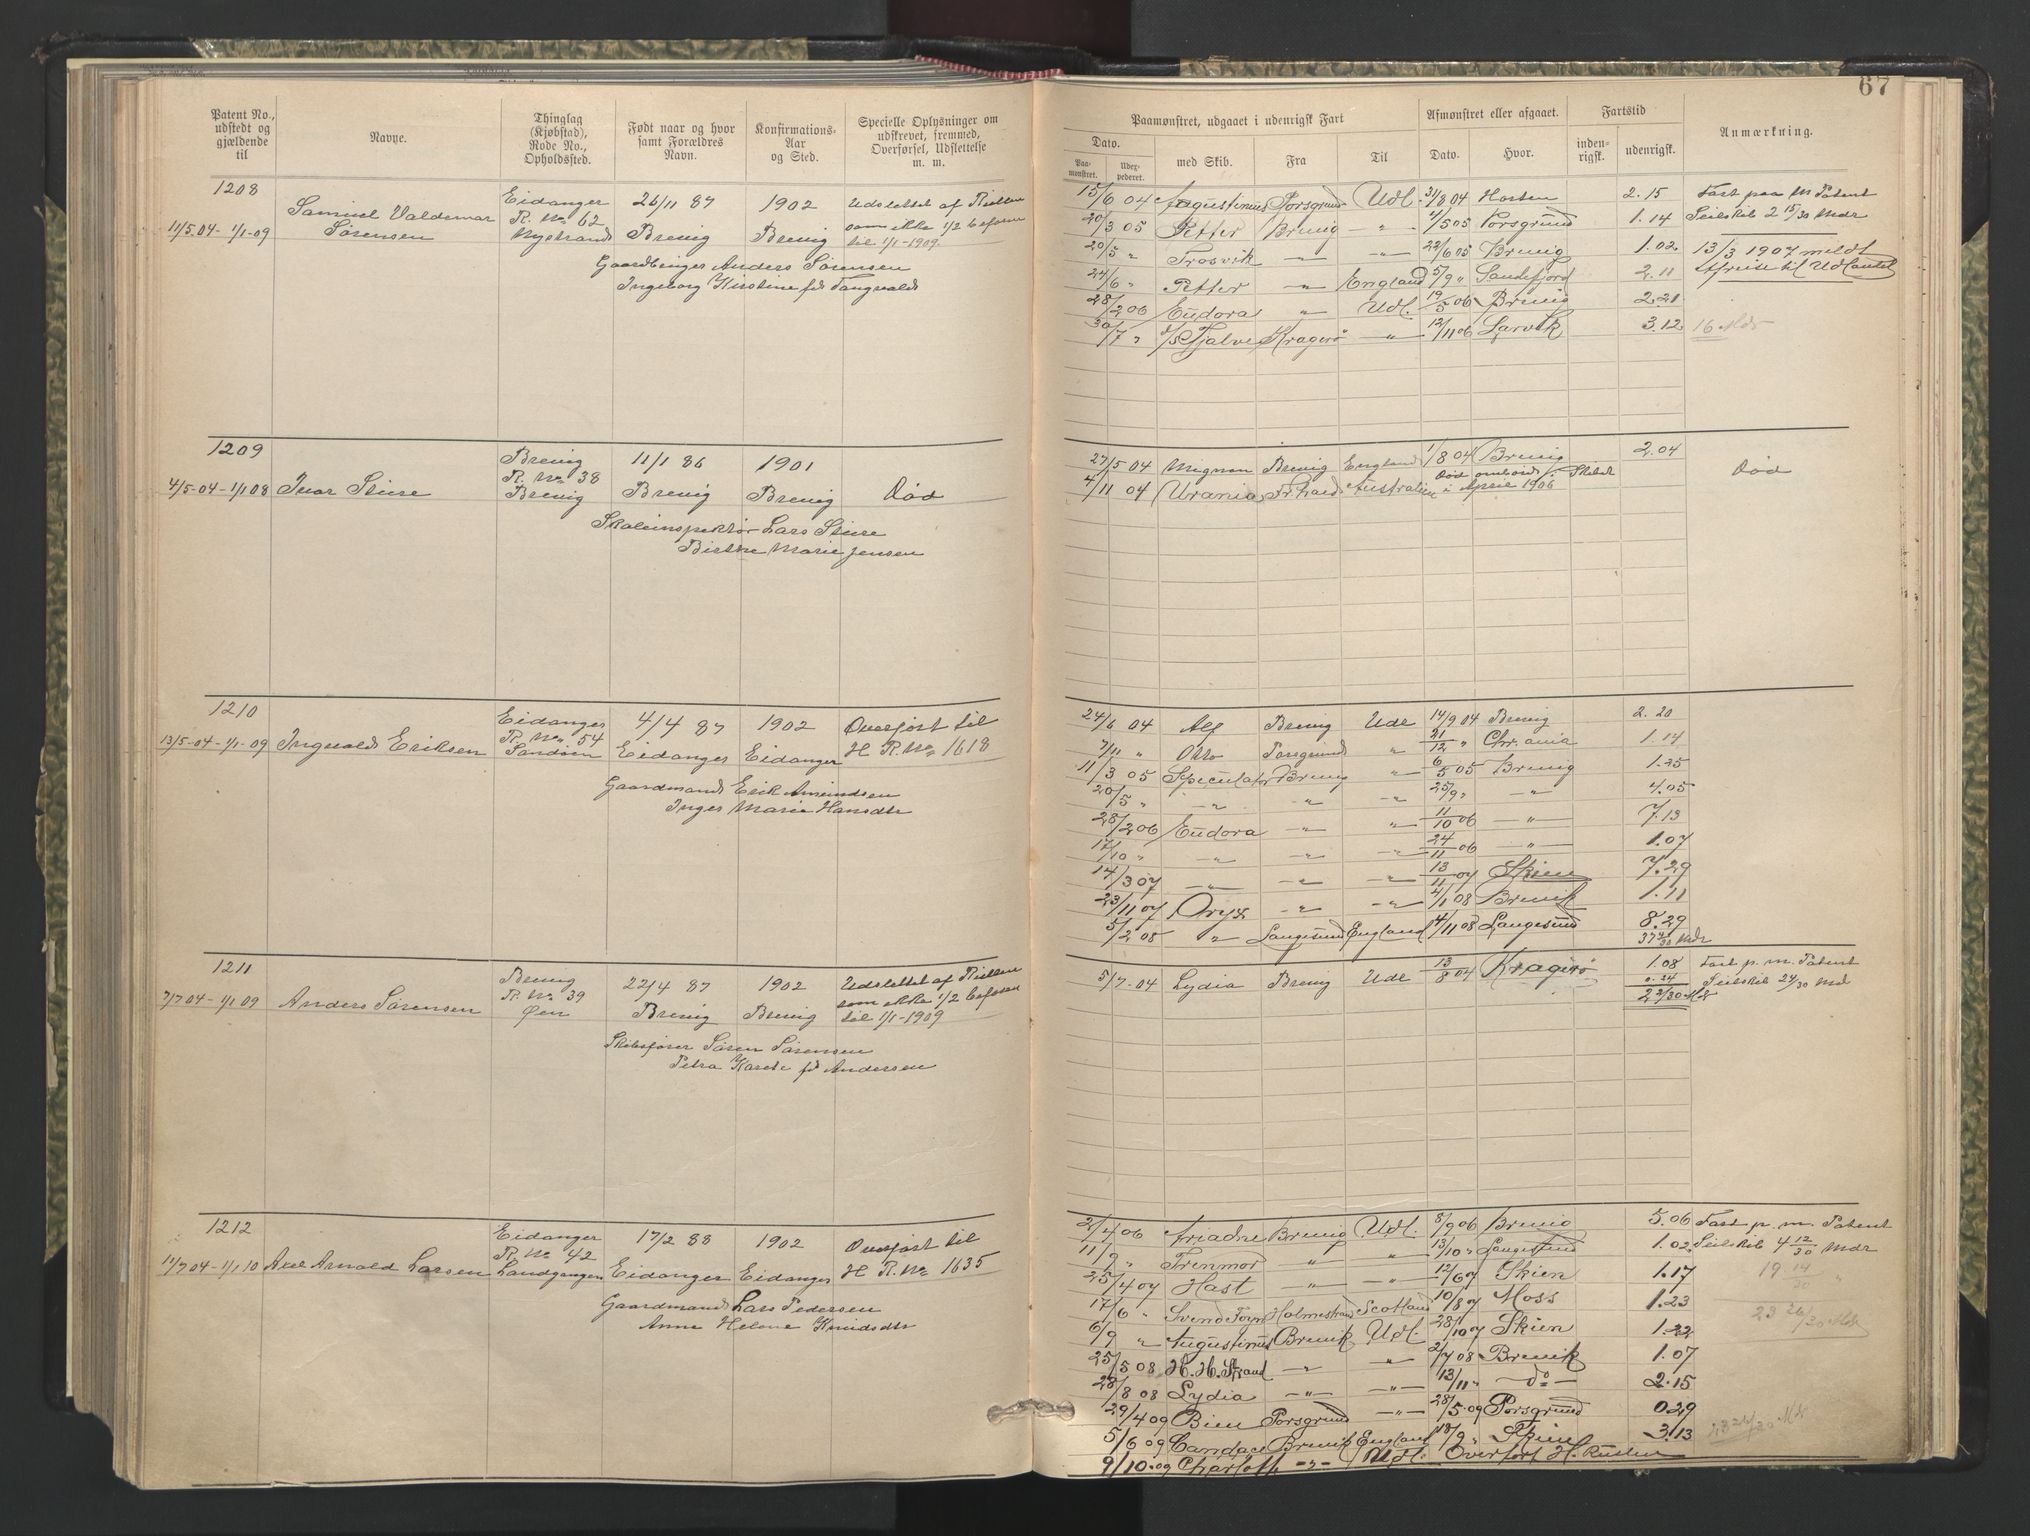 67
Patent No., udstedt og gjældende til
Navne.
Thinglag (Kjøbstad), Rode No., Opholdssted.
Født naar og hvor samt Forældres Navn.
Konfirmations- Aar og Sted.
Specielle Oplysninger om udskrevet, fremmed, Overførsel, Udslettelse m. m.
Paamønstret, udgaaet i udenrigsk Fart
Afmønstret eller afgaaet.
Fartstid
Anmærkning.
Dato.
Paa- mønstret.
Udex- pederet.
med Skib.
Fra
Til
Dato.
Hvor.
inden- rigsk.
udenrigsk.
1208
11/5.04-1/1-09
Samuel Valdemar
Sørensen
Eidanger
R. No 62
Nystrand
26/11 87
Brevig
1902
Brevig
Udslettet af Rullen
som ikke 1/2 befaren
til 1/1-1909.
Gaardbruger Anders Sørensen
Ingeborg Kirstine fd Tangvald
15/6 04 Augustinus Porsgrund Udl. 31/8 04 Horten 2.15 Fart paa m Patent
20/3 05 Petter Brevig " 4/5 05 Porsgrund 1.14 Seilskib 2 15/30 Mdr
20/5 " Trosvik " " 22/6 05 Brevig 1.02 13/3 1907 meldt
24/6 " Petter " England 5/9 " Sandefjord 2.11 Afreise til Udlandet
28/2 06 Eudora " Udl. 19/5 06 Brevig 2.21
30/7 " D/S Fjalve Kragerø " 12/11 06 Larvik 3.12 16 Mdr
1209
4/5-04-1/1 08
Ivar Stiire
Brevig
R. No 38
Brevig
11/1 86
Brevig
1901
Brevig
Død
Skoleinspektør Lars Stiire
Birthe Marie Jensen
27/5 04 Mignon Brevig England 1/8 04 Brevig 2.04 Død
4/11 04 Urania Fr.hald Australien Død ombord Skibet
i April 1906
1210
13/5-04-1/1-09
Ingvald Eriksen
Eidanger
R. No 54
Sandøen
4/4 87
Eidanger
1902
Eidanger
Overført til
H R. No 1618
Gaardmand Erik Amundsen
Inger Marie Hansdtr
24/6 04 Alf Brevig Udl 14/9 04 Brevig 2.20
7/11 " Otto Porsgrund " 21/12 " Chr.ania 1.14
11/3 05 Speculator Brevig " 6/5 05 Brevig 1.25
20/5 " " " " 25/9 " " 4.05
28/2 06 Eudora " " 11/10 06 " 7.13
17/10 " " " " 24/11 06 " 1.07
14/3 07 " " " 13/11 07 Skien 7.29
23/11 07 Oryx " " 4/1 08 Brevik 1.11
5/2 08 " Langesund England 4/11 08 Langesund 8.29
37 4/30 Mdr
1211
7/7 04-1/1 09
Anders Sørensen
Brevig
R. No 39
Øen
22/4 87
Brevig
1902
Brevig
Udslettet af Rullen
som ikke 1/2 befaren
til 1/1-1909
Skibsfører Søren Sørensen
Petra Karete fd Andersen
5/7-04 Lydia Brevig Udl 13/8 04 Kragerø 1.08 Fart p. m. Patent
0.24 Seilskib 24/30 Mdr
2 2/30 Mdr
1212
11/7 04-1/1 10
Axel Arnold Larsen
Eidanger
R. No 42
Landgangen
17/2 88
Eidanger
1902
Eidanger
Overført til
H R. No 1635
Gaardmand Lars Pedersen
Anne Helene Knudsdtr
2/4 06 Ariadne Brevig Udl. 8/9 06 Brevig 5.06 Fart p. m. Patent
11/9 " Frenmor " " 13/10 " Langesund 1.02 Seilskib 4 12/30 Mdr
25/4 07 Hast " " 12/6 07 Skien 1.17 19 14/30 "
17/6 " Svend Foyn Holmestrand Scotland 10/8 07 Moss 1.23 23 26/30 Mdr
6/9 " Augustinus Brevik Udl. 28/10 07 Skien 1.22
25/5 08 H. H. Strand " " 2/7 08 Brevik 1.07
28/8 08 Lydia " " 13/11 " do 2.15
29/4 09 Bien Porsgrund " 28/5 09 Porsgrund 0.29
5/6 09 Candace Brevik England 18/9 " Skien 3.13 28 26/30 Mdr
9/10.09 Charlotte " Udl. Overført H. Rullen